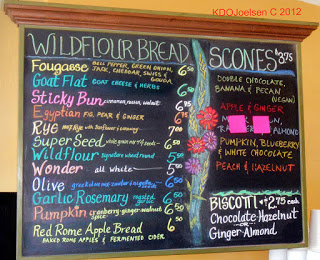 KDOJoelsen C 2012
WILDFLOUR BREAD
Fougasse BELL PEPPER, GREEN ONION, JACK, CHEDDAR, SWISS & GOUDA 6.50
Goat Flat GOAT CHEESE & HERBS 6.50
Sticky Bun cinnamon, raisin, walnut 6.95
Egyptian FIG, PEAR & GINGER
Rye with sunflower & caraway 7.00
Super Seed
Wildflour signature wheat round
Wonder all white 5.00
Olive
Garlic Rosemary roasted garlic
Pumpkin cranberry-ginger-walnut spice
Red Rome Apple Bread 6.50
BAKED ROME APPLES & FERMENTED CIDER
SCONES $3.75
DOUBLE CHOCOLATE, BANANA & PECAN (VEGAN)
APPLE & GINGER
ALMOND
PUMPKIN, BLUEBERRY & WHITE CHOCOLATE
PEACH & HAZELNUT
BISCOTTI $2.75 each
Chocolate-Hazelnut
-OR-
Ginger-Almond